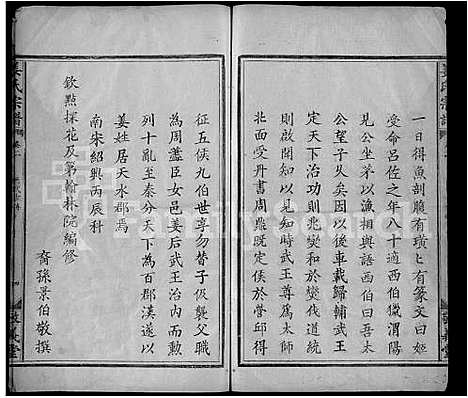 一日得魚剖腹有璜上有篆文曰姬
受命呂佐之年八十適西伯獵渭陽
見公坐茅以漁相與語西伯曰吾
望子久矣因以後車載歸輔武王
定天下治功則兆變和於燮伐道統
則接見於見知時武王尊為太師
北面受丹書周鼎既定侯於營邱得
征五侯九伯世享勿替子伋襲父職
為周藎臣女邑姜后武王治內而勳
列十亂至秦分天下為百郡漢遂以
姜姓居天水郡焉
南宋紹興丙辰科
欽點探花及第翰林院編修
裔孫景伯敬撰
姜氏宗譜
敦義堂